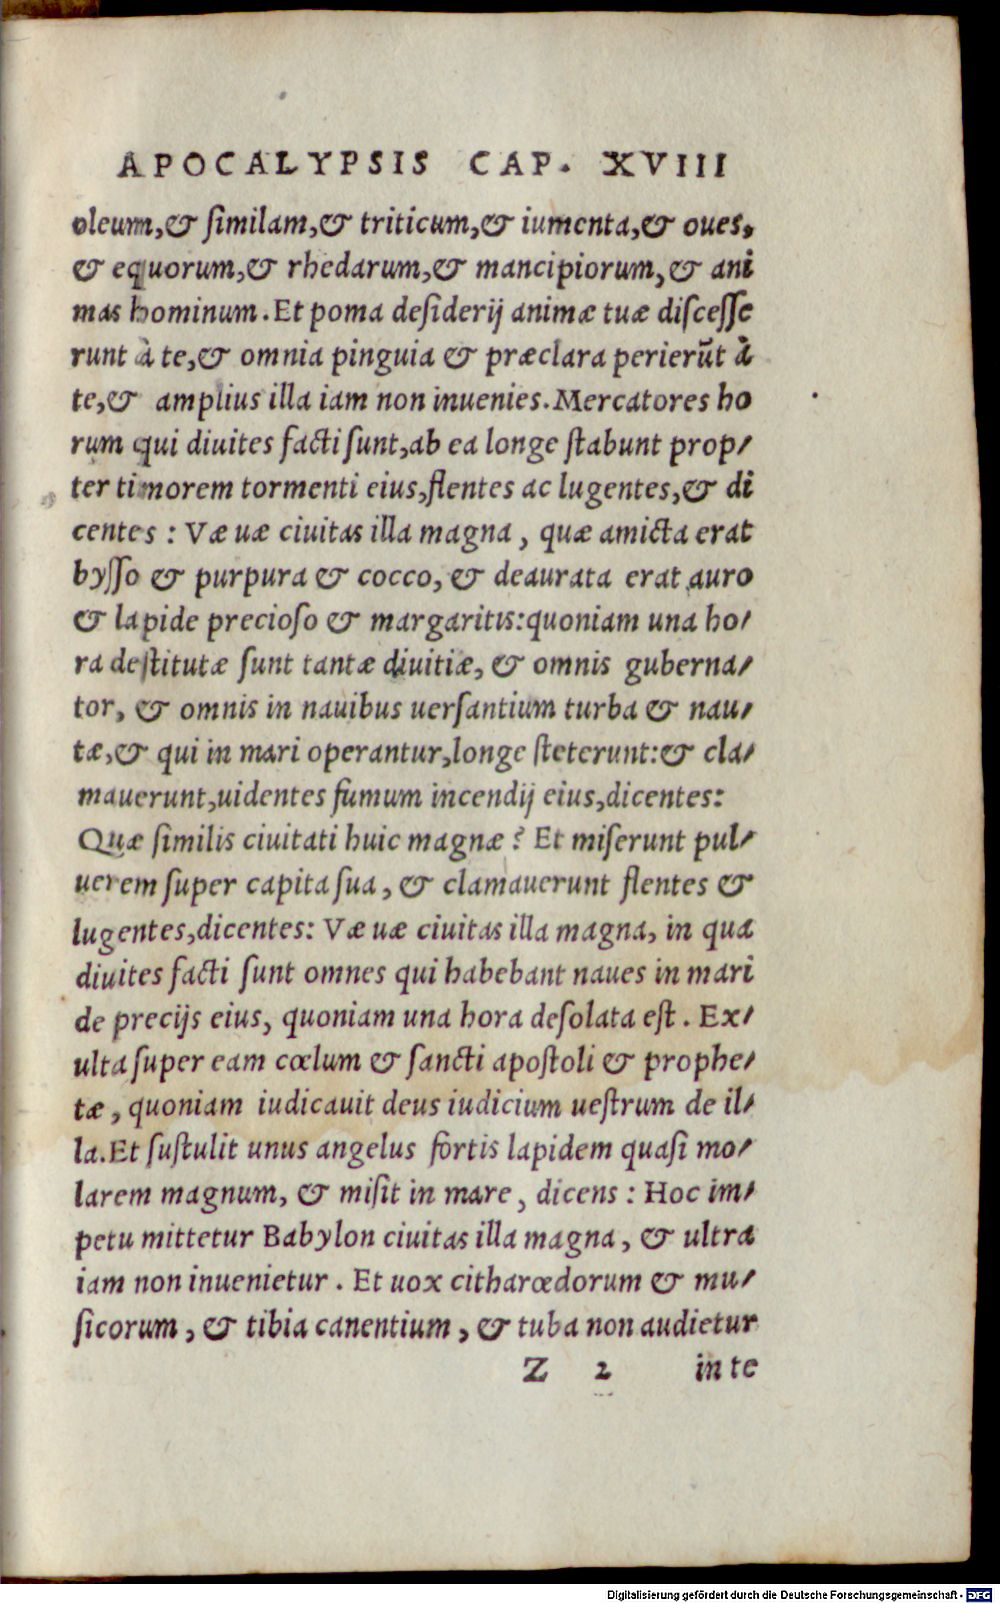 APOCALYPSIS CAP. XVIII
oleum,& ſimilam,& triticum,& iumenta,& oues,
& equorum,& rhedarum,& mancipiorum,& ani
mas hominum. Et poma deſiderij animæ tuæ diſceſſe
runt à te,& omnia pinguia & præclara perierūt à
te,& amplius illa iam non inuenies. Mercatores ho
rum qui diuites facti ſunt,ab ea longe ſtabunt prop⸗
ter timorem tormenti eius,flentes ac lugentes,& di
centes : Væ uæ ciuitas illa magna , quæ amicta erat
byſſo & purpura & cocco, & deaurata erat auro
& lapide precioſo & margaritis:quoniam una ho⸗
ra deſtitutæ ſunt tantæ diuitiæ, & omnis guberna⸗
tor, & omnis in nauibus uerſantium turba & nau⸗
tæ,& qui in mari operantur,longe ſteterunt:& cla⸗
mauerunt,uidentes fumum incendij eius,dicentes:
Quæ ſimilis ciuitati huic magnæ? Et miſerunt pul⸗
uerem ſuper capita ſua, & clamauerunt flentes &
lugentes,dicentes: Væ uæ ciuitas illa magna, in qua
diuites facti ſunt omnes qui habebant naues in mari
de precijs eius, quoniam una hora deſolata eſt. Ex⸗
ulta ſuper eam cœlum & ſancti apoſtoli & prophe⸗
tæ, quoniam iudicauit deus iudicium ueſtrum de il⸗
la. Et ſuſtulit unus angelus fortis lapidem quaſi mo⸗
larem magnum, & miſit in mare, dicens : Hoc im⸗
petu mittetur Babylon ciuitas illa magna, & ultra
iam non inuenietur. Et uox citharœdorum & mu⸗
ſicorum, & tibia canentium, & tuba non audietur
Z 2 in te
Digitalisierung gefördert durch die Deutsche Forschungsgemeinschaft - DFG